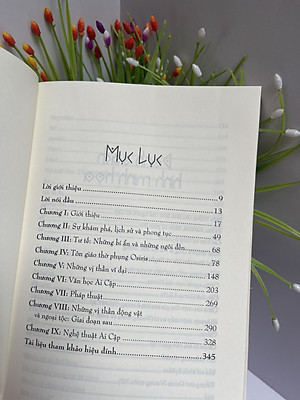 Mục Lục
Lời giới thiệu 9
Lời nói đầu 13
Chương I: Giới thiệu 17
Chương II: Sự khám phá, lịch sử và phong tục 49
Chương III: Tư tế: Những bí ẩn và những ngôi đền 68
Chương IV: Tôn giáo thờ phụng Osiris 78
Chương V: Những vị thần vĩ đại 148
Chương VI: Văn học Ai Cập 253
Chương VII: Pháp thuật 269
Chương VIII: Những vị thần động vật
và ngoại tộc: Giai đoạn sau 290
Chương IX: Nghệ thuật Ai Cập 330
Tài liệu tham khảo hiệu đính 345